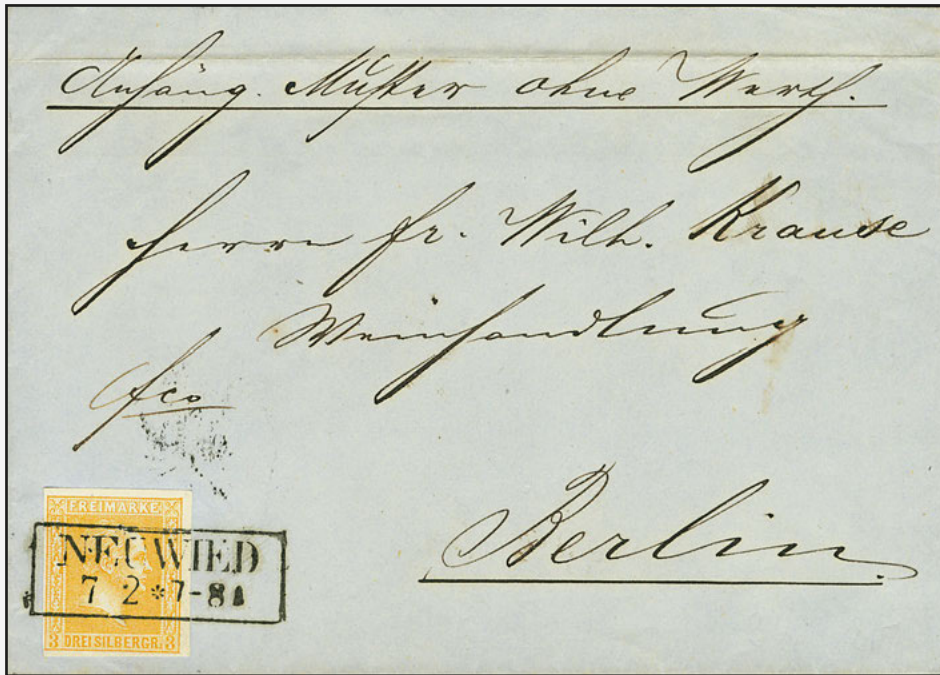 Anhäng. Muster ohne Werth.
Herrn Fr. Wilh. Krause
Weinhandlung
fco
Berlin.
FREIMARKE
NEUWIED
7 2 * 7-8 A
3 DREI SILBERGR. 3